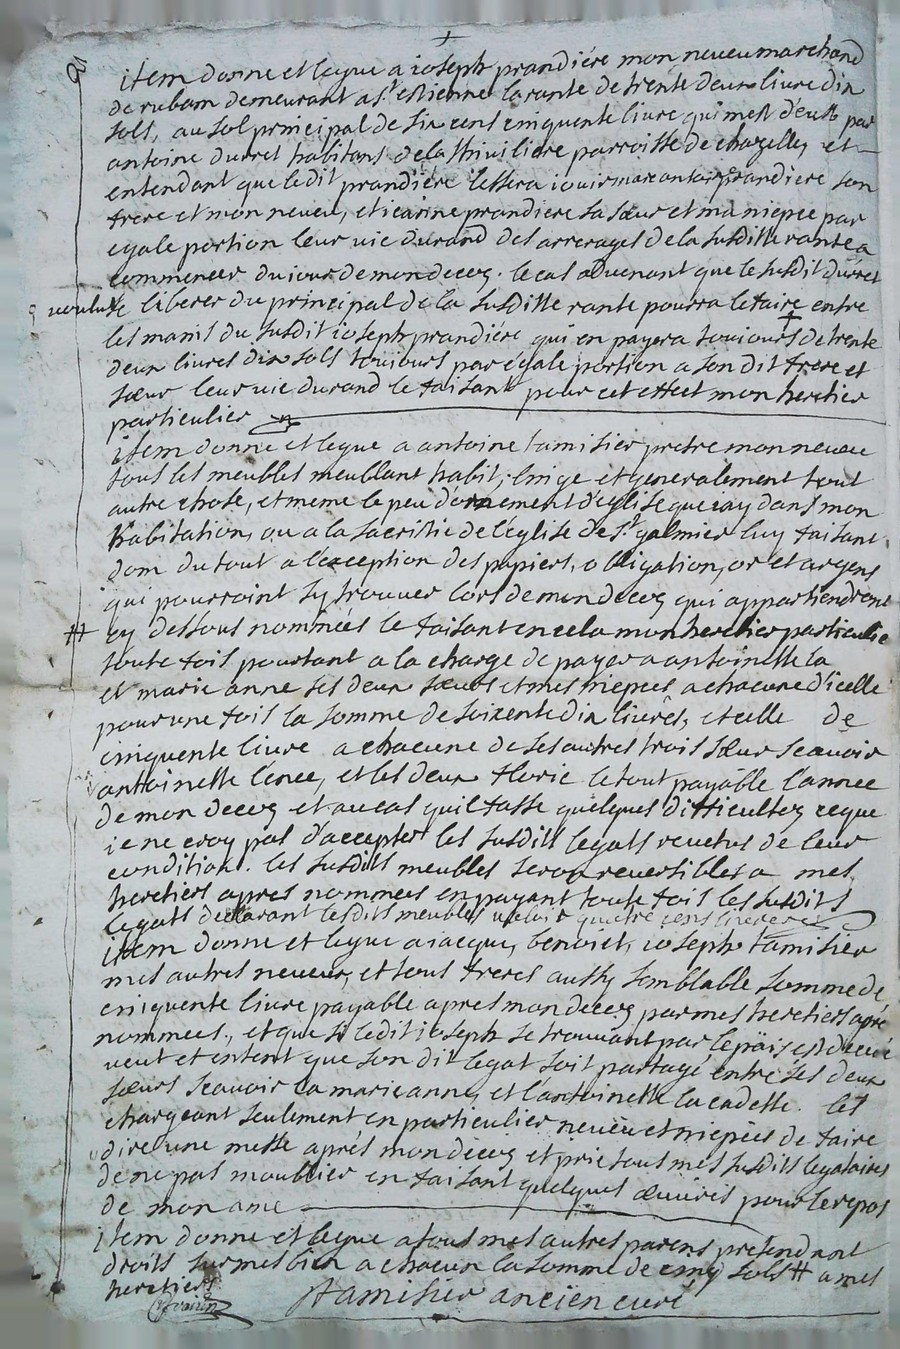 item donne et legue a ioseph prandiére mon neveu marchand
de ruban demeurant a st estienne la rante de trente deux livre dix
sols, au sol principal de six cens cinquente livre qui mest deub par
antoine durret habitans de la thiviliere parroisse de chazelles et
entendant que ledit prandiére lessera iouir prandiere son
frere et mon neveu, et ieanne prandiere sa sœur et ma niepce par
egale portion leur vie durand des arrerages de la susditte rante a
commencer du iour de mon decez. le cas advenant que le susdit durret
voulut se liberer du principal de la susditte rante pourra le faire entre
les mains du susdit ioseph prandiére qui en payera toujours de trente
deux livres dix sols toujours par egale portion a son dit frere et
sœur leur vie durand le faisant pour cet effect mon heretier
particulier
item donne et legue a antoine tamisier pretre mon neveu
tous les meubles meublant habit, linge et generalement tout
autre chose, et meme le peu dornement deglise que iay dans mon
habitation, ou a la sacristie de leglise de st galmier luy faisant
dom du tout a lexception des papiers, obligation, or et argens
qui pourroint sy trouver lors de mon decez qui appartiendront
# cy dessous nommées le faisant en cela mon heretier particulie
toute fois pourtant a la charge de payer a antoinette la
et marie anne ses deux sœurs et mes niepces a chacune dicelle
pour une fois la somme de soixente dix livres, et celle de
cinquente livre a chacune de ses autres trois sœur scavoir
antoinette lenee, et les deux floric le tout payable lannee
de mon decez et au cas quil fasse quelques difficultez ce que
ie ne croy pas daccepter les susdits legats revetus de leur
condition. les susdits meubles seron reversibles a mes
heretiers apres nommees en payant toute fois les susdits
legats declarant lesdits meubles valoir quatre cens livres
item donne et legue a iacque, benoist, ioseph tamisier
mes autres neveux, et tous freres aussy semblable somme de
cinquente livre payable apres mon decez par mes heretiers apre
nommees, et que si ledit ioseph se trouvant par le païs
veut et entent que son dit legat soit partagé entre ses deux
sœurs scavoir la marie anne, et lantoinette la cadette. les
chargeant seulement en particulier neveu et niepces de faire
dire une messe aprés mon decez et prie tous mes susdits legataires
de ne pas moublier en faisant quelques œuvres pour le repos
de mon ame
item donne et legue a tous mes autres parens pretendant
droits sur mes bien a chacun la somme de cinq sols # a mes
heretiers
tamisier ancien curé